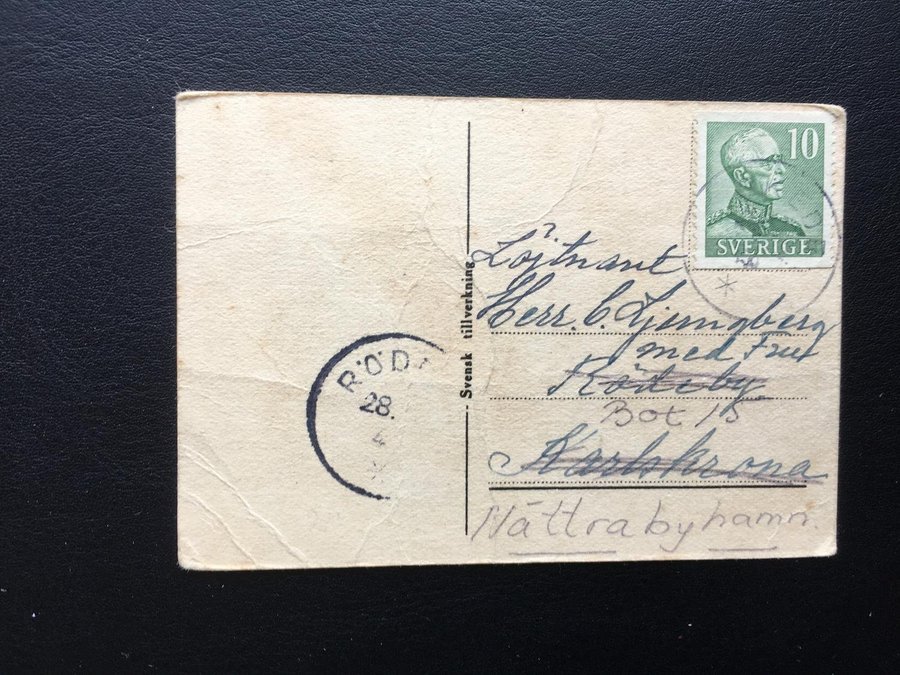 10
SVERIGE
Löjtnant
Herr. C. Ljungberg
med Fru
Rödeby
Bot 15
Karlskrona
Nättrabyhamn.
Svensk tillverkning
RÖD
28.
4